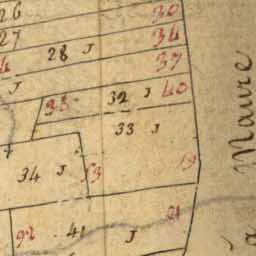 26 30
27 34
28 J 37
J
38 32 J 40
33 J
34 J 53 19
92 41 J 21
Mavre
à